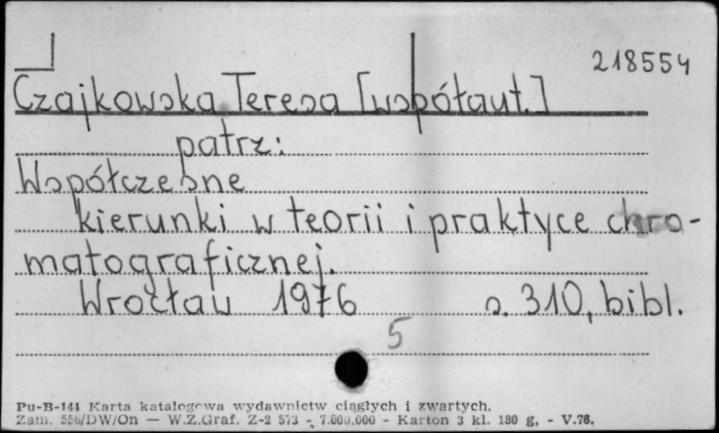 218554
Czajkowska Teresa [współaut.]
patrz:
Współczesne
kierunki w teorii i praktyce chro-
matograficznej.
Wrocław 1976 s. 310, bibl.
5
Pu-B-144 Karta katalogowa wydawnictw ciągłych i zwartych.
Zam. 556/DW/On — W.Z.Graf. Z-2 573 - 7.000.000 - Karton 3 kl. 180 g. - V.76.